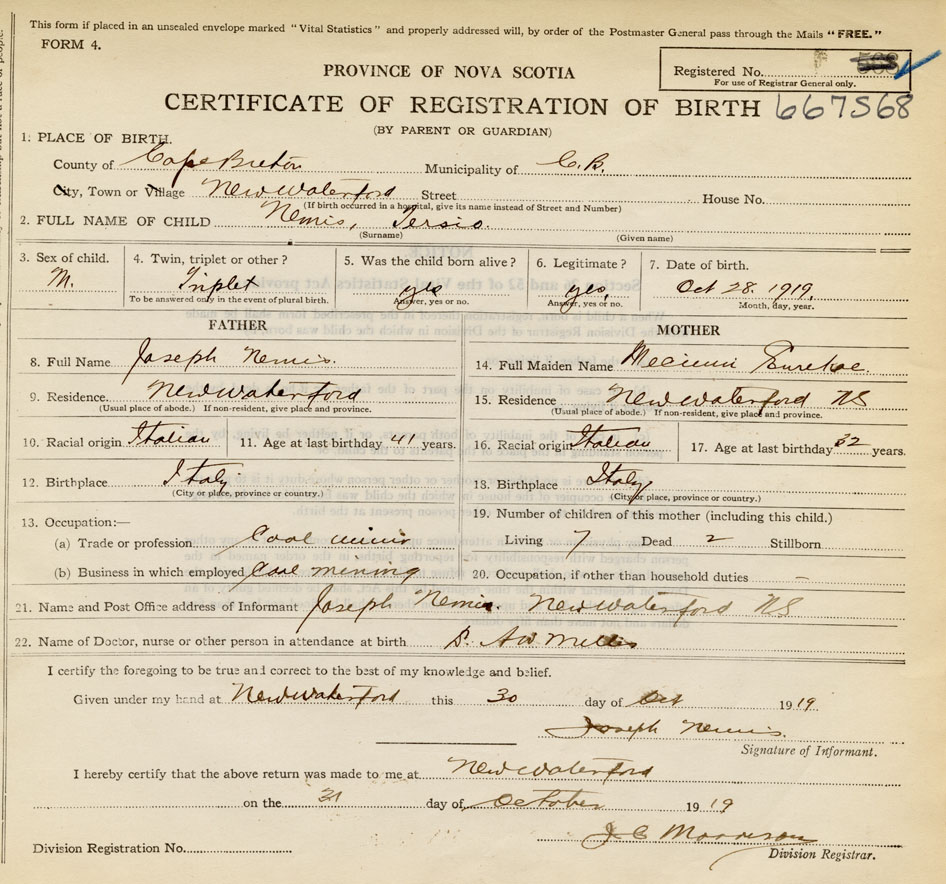 This form if placed in an unsealed envelope marked "Vital Statistics" and properly addressed will, by order of the Postmaster General pass through the Mails "FREE."
FORM 4.
Registered No.
For use of Registrar General only.
PROVINCE OF NOVA SCOTIA
CERTIFICATE OF REGISTRATION OF BIRTH 667568
(BY PARENT OR GUARDIAN)
1. PLACE OF BIRTH.
County of Cape Breton Municipality of C. B.
City, Town or Village New Waterford Street House No.
(If birth occurred in a hospital, give its name instead of Street and Number)
2. FULL NAME OF CHILD Nemis, Tersio.
(Surname) (Given name)
3. Sex of child. 4. Twin, triplet or other? 5. Was the child born alive? 6. Legitimate? 7. Date of birth.
M. Triplet yes yes, Oct 28. 1919.
To be answered only in the event of plural birth. Answer, yes or no. Answer, yes or no. Month, day, year.
FATHER MOTHER
8. Full Name Joseph Nemis. 14. Full Maiden Name
9. Residence New Waterford 15. Residence New Waterford NS
(Usual place of abode.) If non-resident, give place and province. (Usual place of abode.) If non-resident, give place and province.
10. Racial origin Italian 11. Age at last birthday 41 years. 16. Racial origin Italian 17. Age at last birthday 32 years.
12. Birthplace Italy 18. Birthplace Italy
(City or place, province or country.) (City or place, province or country.)
13. Occupation:— 19. Number of children of this mother (including this child.)
(a) Trade or profession Coal miner Living 7 Dead 2 Stillborn
(b) Business in which employed Coal mining 20. Occupation, if other than household duties –
21. Name and Post Office address of Informant Joseph Nemis. New Waterford NS
22. Name of Doctor, nurse or other person in attendance at birth
I certify the foregoing to be true and correct to the best of my knowledge and belief.
Given under my hand at New Waterford this 30 day of Oct 1919
Joseph Nemis.
Signature of Informant.
I hereby certify that the above return was made to me at New Waterford
on the 31 day of October 1919
J C Morrison
Division Registration No. Division Registrar.